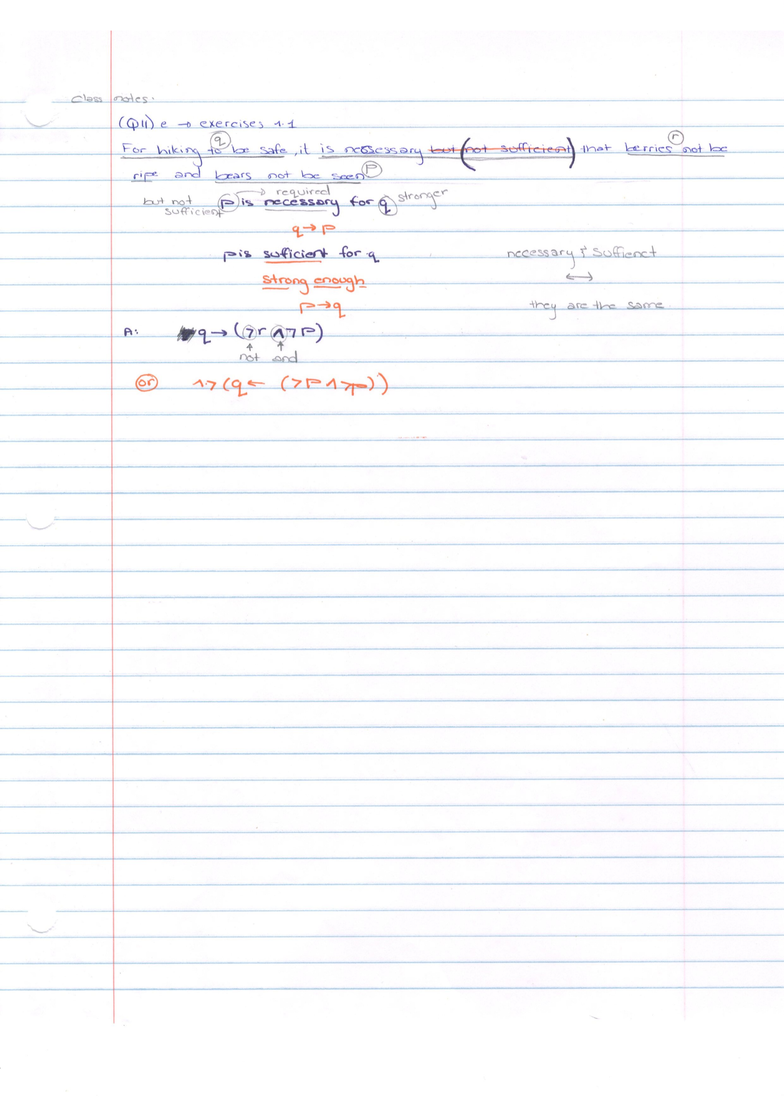 Class notes.
(Q11) e → exercises 1.1
q r
For hiking to be safe, it is necessary but (not sufficient) that berries not be
ripe and bears not be seen p
required
but not sufficient p is necessary for q stronger
q → p
p is suficient for q necessary & Suffienct
strong enough ↔
p → q they are the same
A: q → (¬r ∧ ¬p)
not and
or ∧¬(q ← (¬p ∧ ¬p))